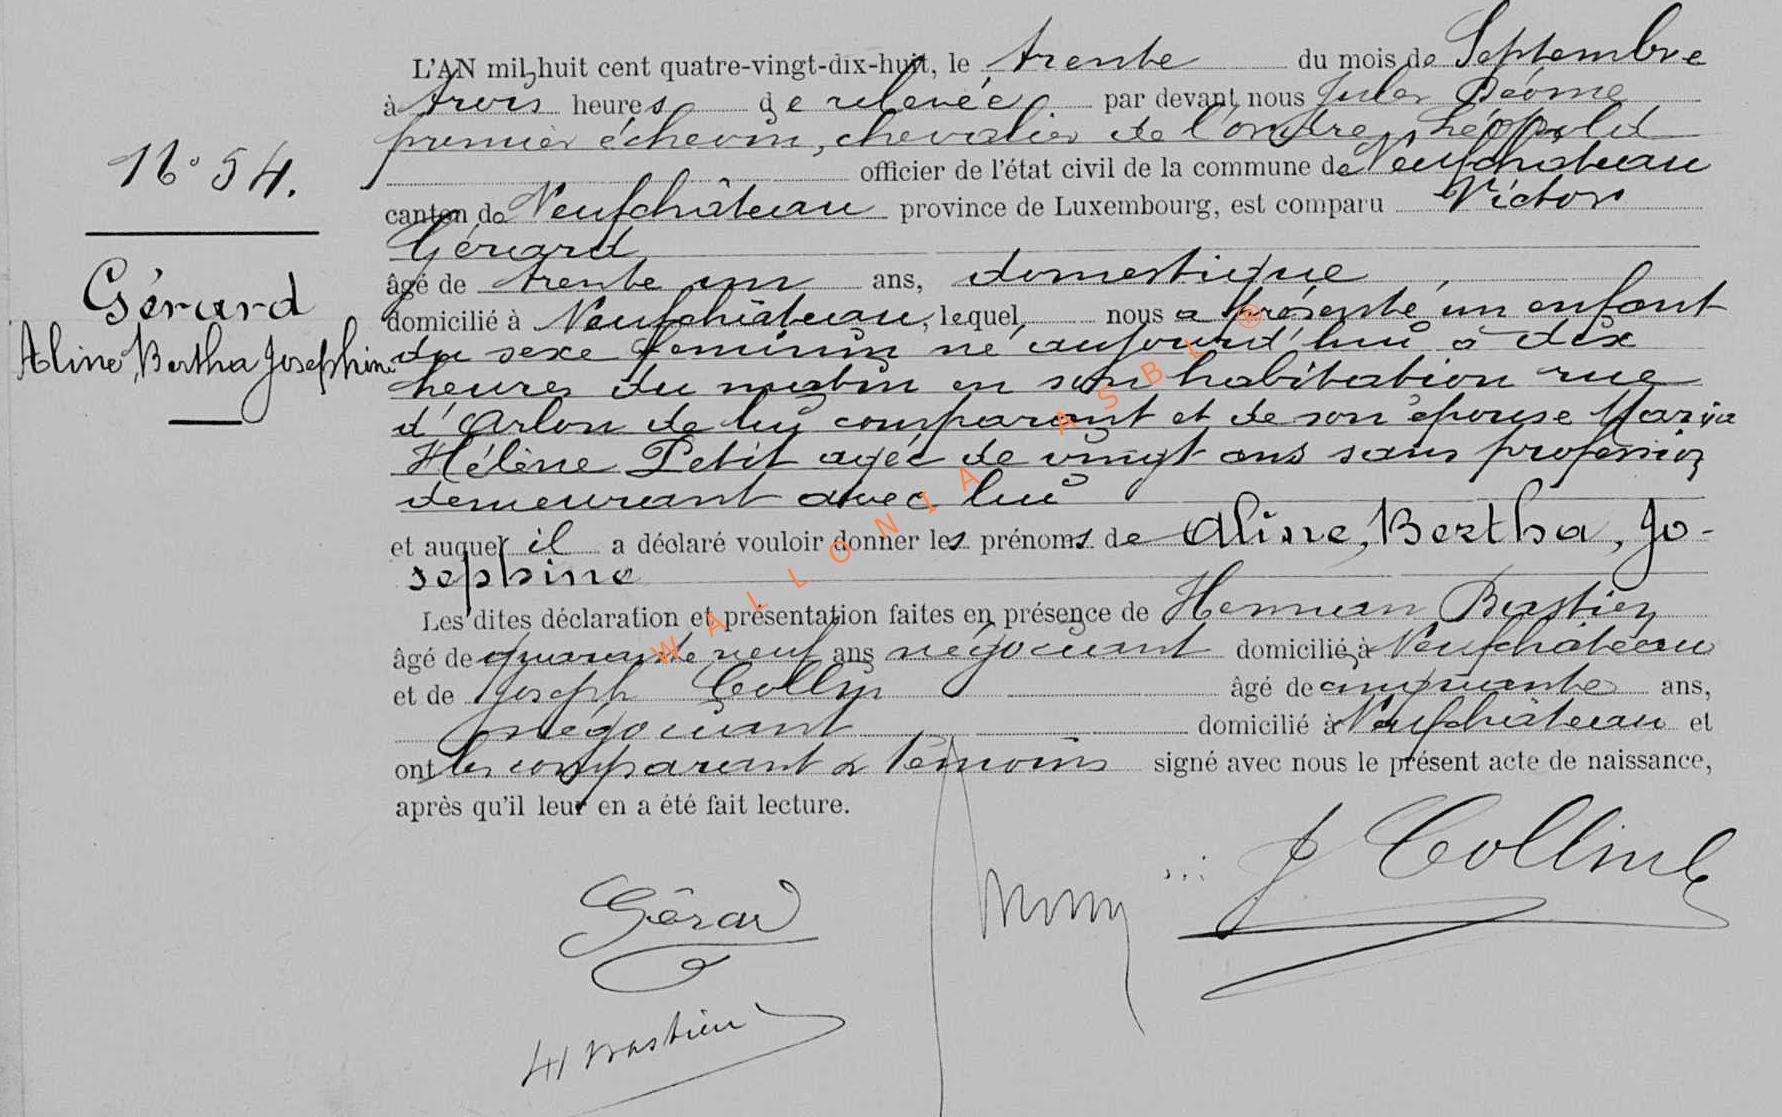 L'AN mil huit cent quatre-vingt-dix-huit, le trente du mois de Septembre
à trois heures de relevée par devant nous Jules
premier échevin, chevalier de l'ordre Léopold
officier de l'état civil de la commune de Neufchâteau
canton de Neufchâteau province de Luxembourg, est comparu Victor
Gérard
âgé de trente un ans, domestique
domicilié à Neufchâteau, lequel nous a présenté un enfant
du sexe féminin né aujourd'hui à dix
heures du matin en son habitation rue
d'Arlon de lui comparant et de son épouse Maria
Hélène Petit agée de vingt ans sans profession
demeurant avec lui
et auquel il a déclaré vouloir donner les prénoms de Aline, Bertha, Jo-
sephine
Les dites déclaration et présentation faites en présence de Herman Bastien
âgé de quarante neuf ans négociant domicilié à Neufchâteau
et de Joseph Collin âgé de cinquante ans,
négociant domicilié à Neufchâteau et
ont les comparant & témoins signé avec nous le présent acte de naissance,
après qu'il leur en a été fait lecture.
N° 54.
Gérard
Aline, Bertha Josephine
J Collin
Gérard
H Bastien
WALLONIA ASBL ®